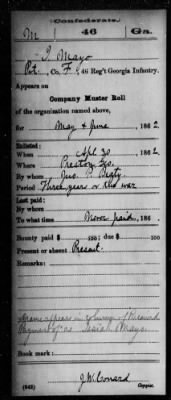 Confederate.
M 46 Ga.
I. Mayo
Pvt., Co. F, 46 Reg't Georgia Infantry.
Appears on
Company Muster Roll
of the organization named above,
for May & June, 1862
Enlisted:
When Apl 30, 1862
Where Preston Ga.
By whom Jno. P. Beaty
Period Three years or the war
Last paid:
By whom
To what time Never paid, 186 .
Bounty paid $ 100; due $ 100
Present or absent Present
Remarks:
Name appears in column of
as Isaiah Mayo.
Book mark:
J. W. Conard
(642) Copyist.